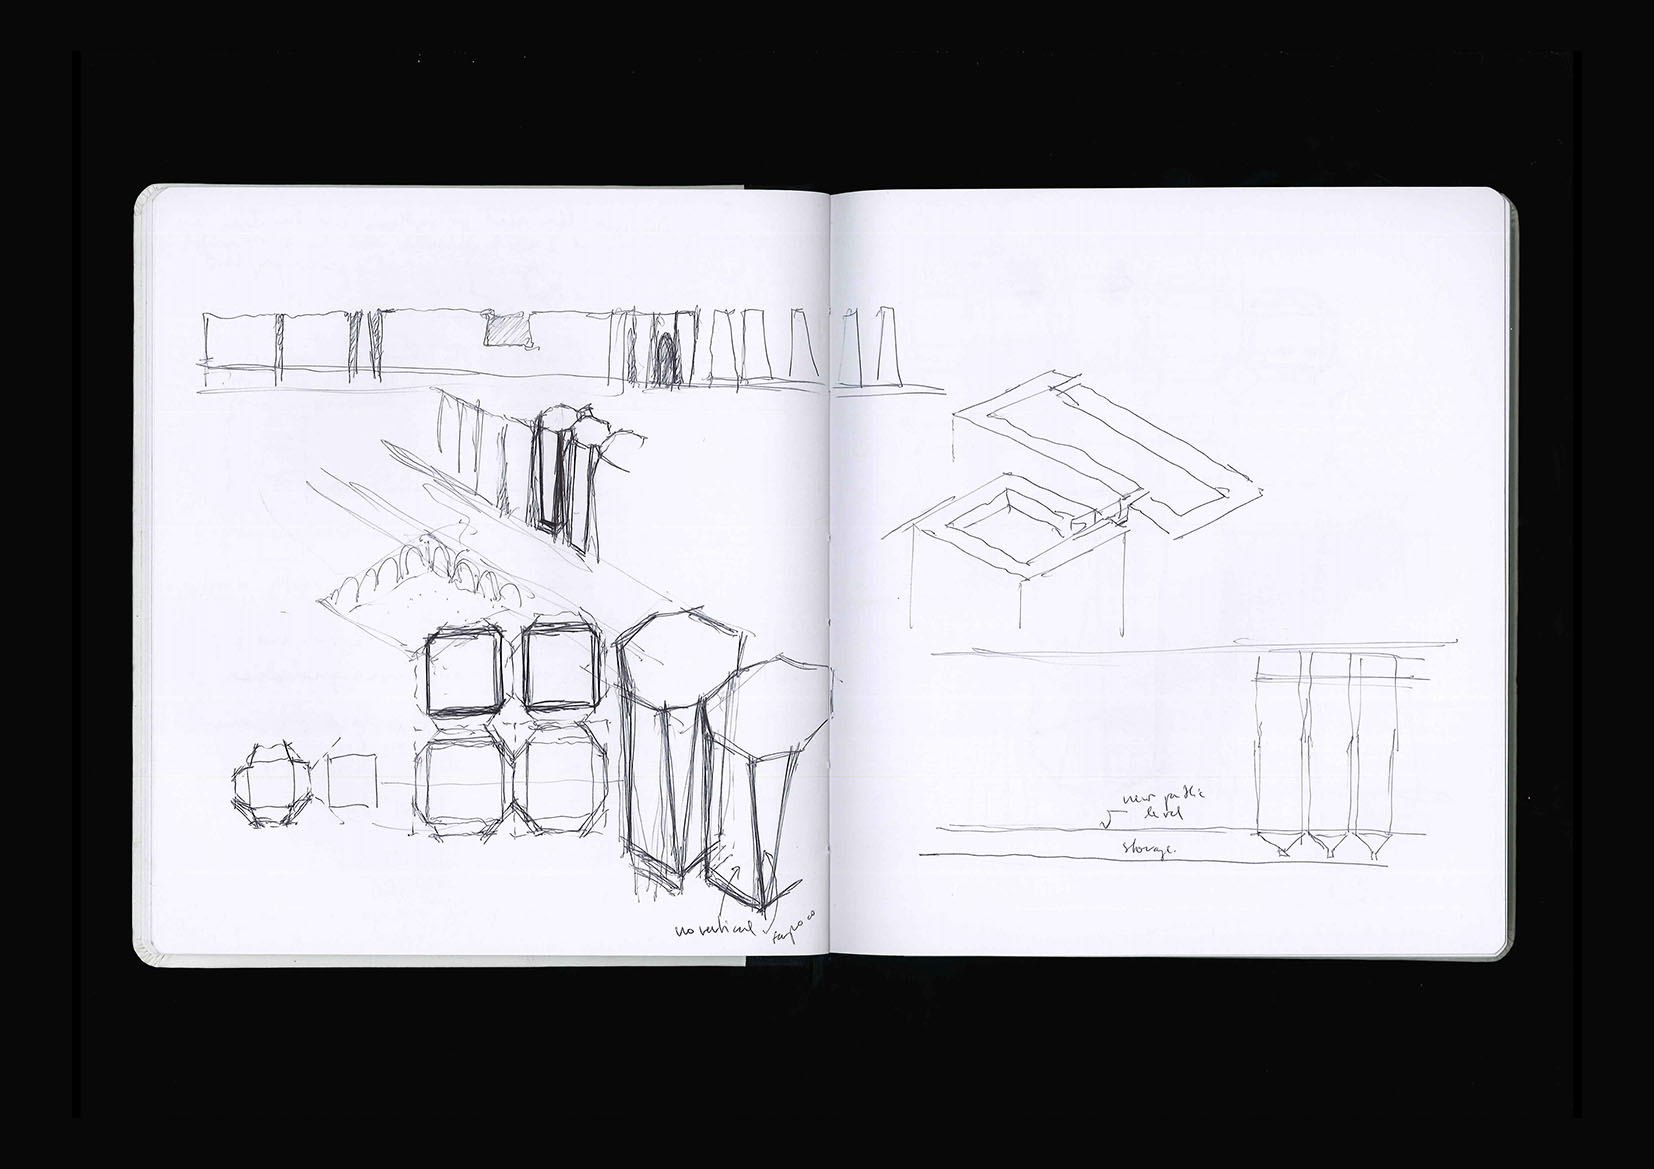 no vertical
new public
level
storage.